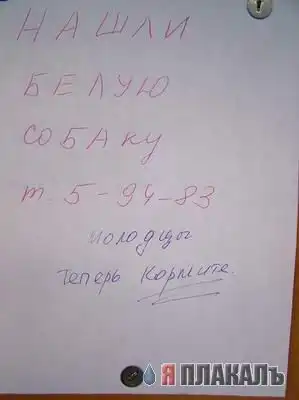 НАШЛИ
БЕЛУЮ
СОБАКУ
т. 5-94-83
молодцы
теперь кормите.
Я ПЛАКАЛЪ